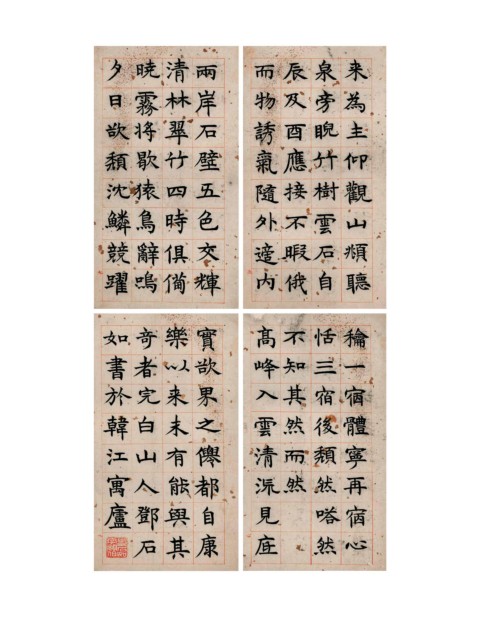 来為主仰觀山頫聽
泉旁睨竹樹雲石自
辰及酉應接不暇俄
而物誘氣隨外適内
龢一宿體寧再宿心
恬三宿後頹然嗒然
不知其然而然
高峰入雲清流見底
兩岸石壁五色交輝
清林翠竹四時俱備
曉霧将歇猿鳥辭鳴
夕日欲頹沈鱗競躍
實欲界之僊都自康
樂以来未有能與其
奇者完白山人鄧石
如書於韓江寓廬